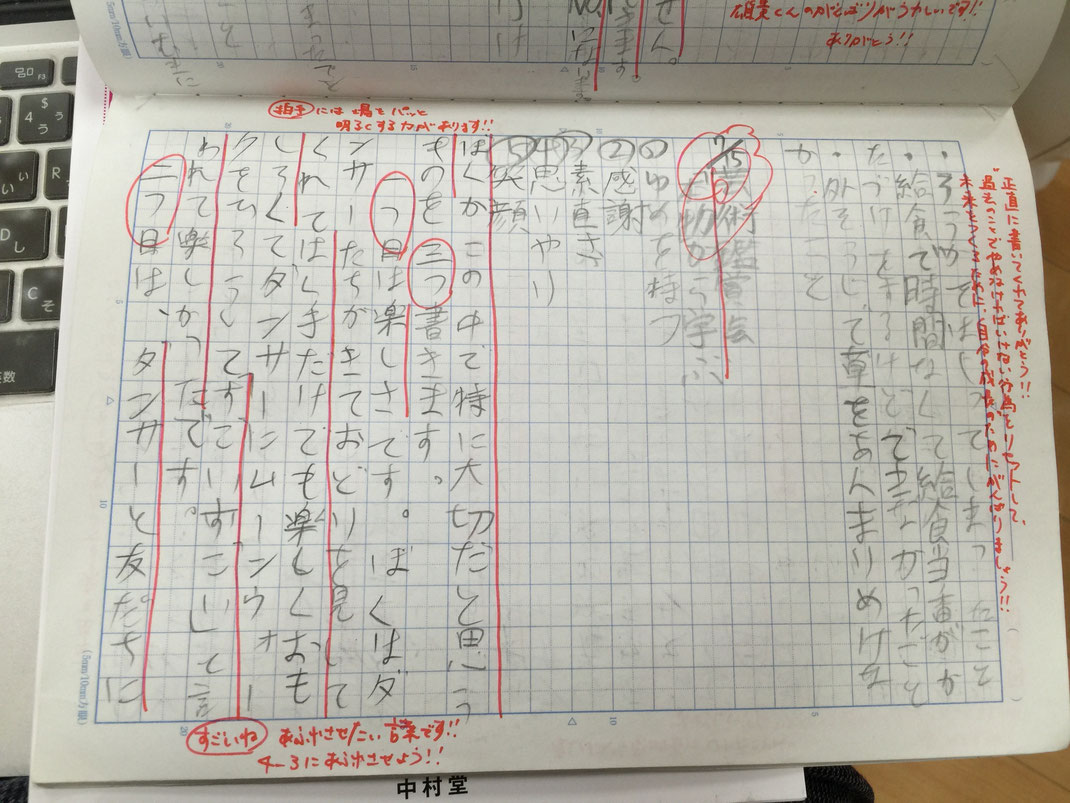 雄貴くんのがんばりがうれしいです!!
ありがとう!!
正直に書いてくれてありがとう!!
過去のことでやめなければいけない行為をリセットして、
未来をつくるために、自分の成長のためにがんばりましょう!!
・ろうかをはしってしまったこと
・給食で時間なくて給食当番がか
たづけをするけどできなかったこと
・外そうじで草をあんまりぬけな
かったこと
7/15
芸術鑑賞会
で切から学ぶ
①ゆめを持つ
②感謝
③素直さ
④思いやり
⑤笑顔
ぼくがこの中で特に大切だと思う
ものを三つ書きます。
一つ目は楽しさです。ぼくはダ
ンサーたちがきておどりを見して
くれてはく手だけでも楽しくおも
しろくてダンサーにムーンウォー
クをひろうしてすごいすごいと言
われて楽しかったです。
二つ目は、ダンサーと友だちに
拍手には場をパッと
明るくする力があります!!
すごいね あふれさせたい言葉です!!
4-3にあふれさせよう!!
中村堂
(5mm/10mm方眼)